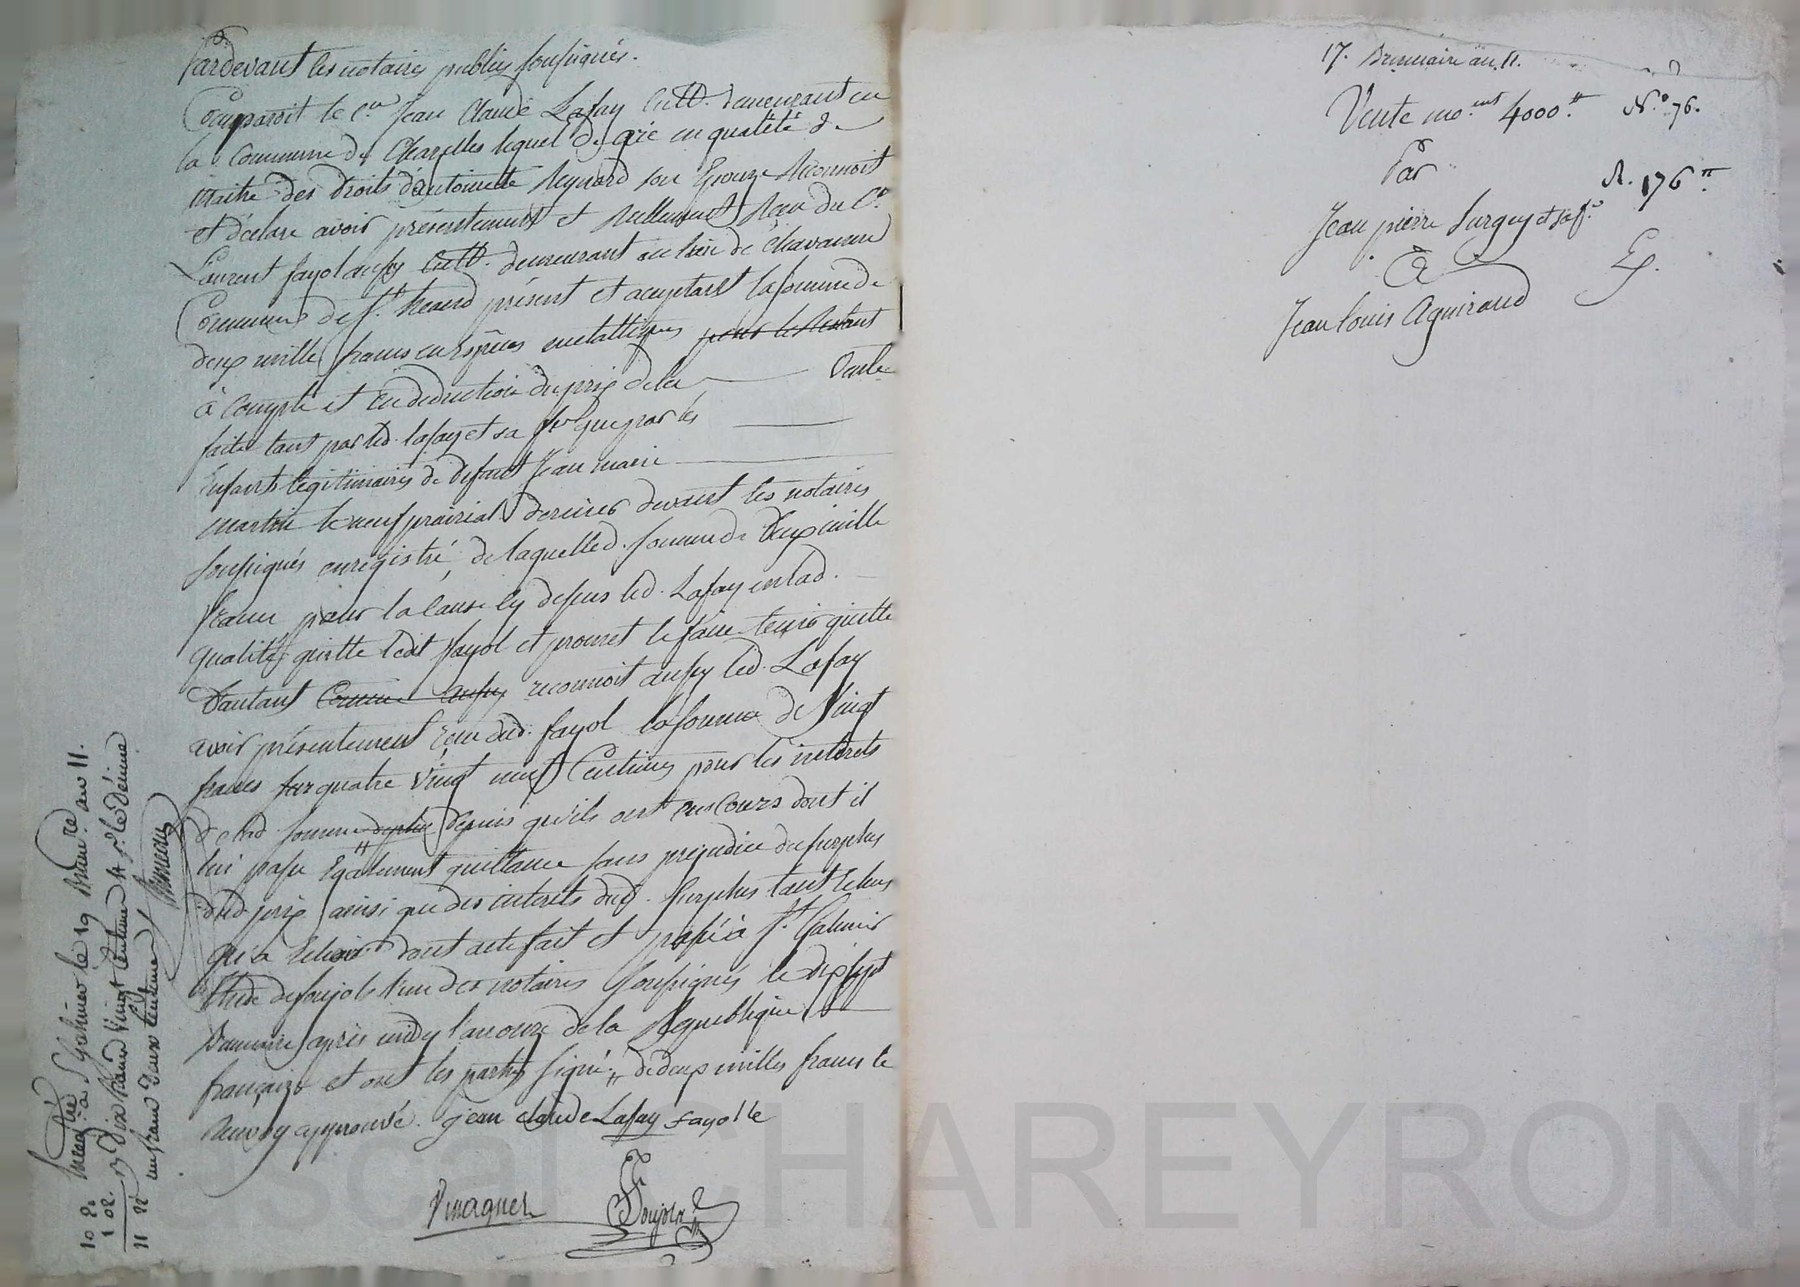 Pardevant les notaires publics soussignés.
Comparoit le C.en Jean Claude Lafay Cult. demeurant en
la Commune de Chazelles lequel de gré en qualité de
maitre des droits d'antoinette Reynard son Epouze Reconnoit
et déclare avoir présentement et Réellement Reçu du C.en
Laurent fayol aussy Cult. demeurant au lieu de Chavanne
Commune de S.t médard présent et acceptant la somme de
deux mille francs en espèces métalliques pour le Restant
à Compte et en déduction du prix de la vente
faite tant par led. Lafay et sa f.e que par les
Enfants légitimaires de défunt Jean marie
martin le neuf prairial dernier devant les notaires
soussignés enregistré, de laquelle d. somme de deux mille
francs pour la Cause cy dessus led. Lafay en lad.
qualité quitte ledit fayol et promet le faire tenir quitte
d'autant Comme aussy reconnoit aussy led. Lafay
avoir présentement Reçu dud. fayol la somme de Vingt
francs quatre Vingt neuf Centimes pour les interets
de lad. somme depuis qu'ils ont eus Cours dont il
lui passe Egalement quittance sans préjudice du surplus
dud. prix ainsi que des interets dud. Surplus tant Echus
qu'à Echoir dont acte fait et passé à S.t Galmier
Etude de soujols l'un des notaires Soussignés le dix sept
Brumaire après midy l'an onze de la Republique
française et ont les parties signé. " de deux milles francs le
Renvoy approuvé. Jean Claude Lafay fayolle
Soujols
Enreg.tré à S.t Galmier le 19 Brum.re an 11.
10 . 20 dix francs Vingt Centimes
1 02 un franc deux Centimes
11 22
17. Brumaire an 11.
Vente mo.ent 4000.tt N.o 76.
Par
R. 176.tt
Jean pierre Surgey et sa f.e
a
Ex.
Jean Louis Aguiraud
Pascal CHAREYRON